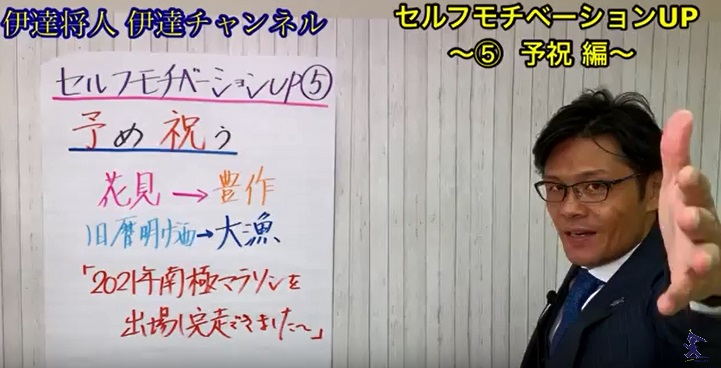 伊達将人 伊達チャンネル
セルフモチベーションUP
～⑤ 予祝 編～
セルフモチベーションUP⑤
予め祝う
花見→豊作
旧暦明け酒→大漁
「2021年南極マラソンを
出場し完走できました～」